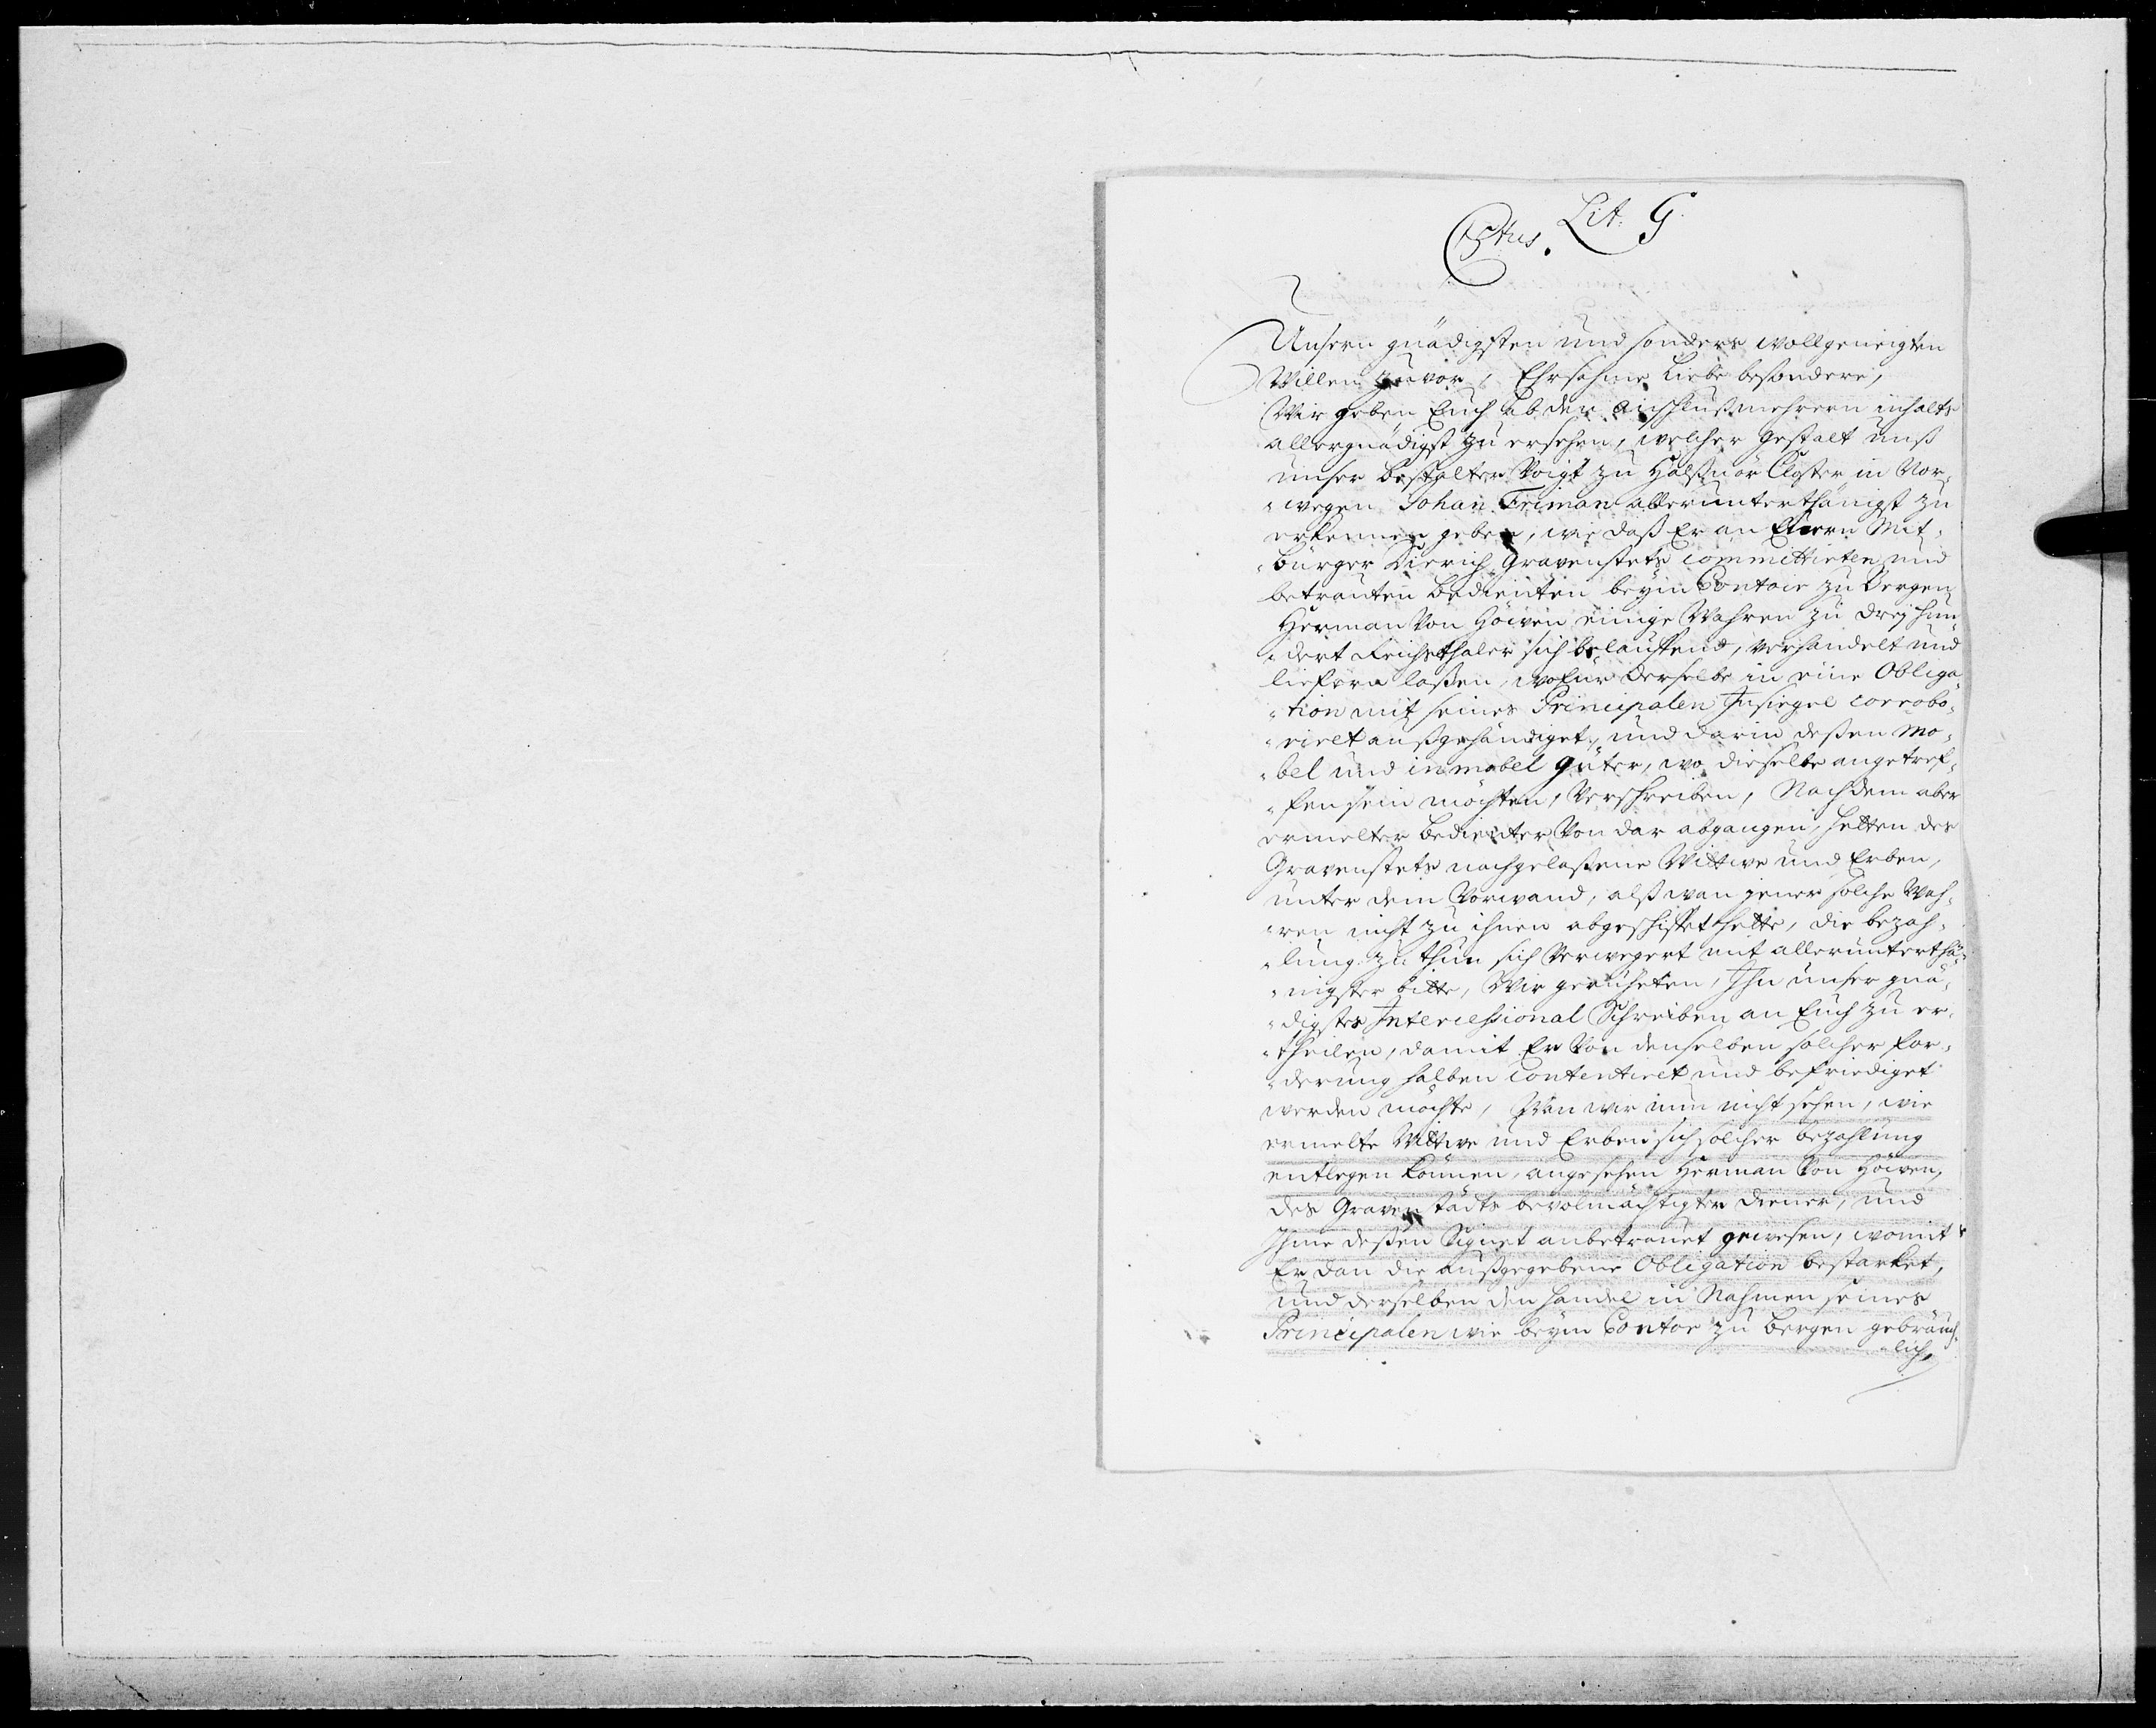 Lit. G.
Unsern gnädigsten und sonders wollgeneigten
Willen zuvor, Ehrsahme Liebe besondere,
Wir geben Euch ab der einschluß mehrern inhalts
allergnädigst zu ersehen, welcher gestalt unß
unser bestalter Voigt zu Halßnör Closter in Nor¬
wegen Johan Friman allerunterthänigst zu
erkennen geben, wie daß Er an Euern Mit¬
bürger Dierich Gravenstets committirten und
betrauten bedienten beym Contoir zu Bergen
Herman Von Höiven einige Wahren zu dreÿ hun
dert Reichsthaler sich belauffend, verhandelt und
liefern laßen, wofür derselbe in eine Obliga
tion mit seines Principalen Insiegel corrobo¬
riret außgehändiget, und darin deßen mo¬
bel und inmobel güter, wo dieselbe angetref¬
fen sein möchten, verschreiben, Nachdem aber
ermelter bedienter Von dar abgangen, hetten des
Gravenstets nachgelaßene Wittwe und Erben,
unter dem Vorwand, alß wan jener solche Wah¬
ren nicht zu ihnen abgeschiffet hette, die bezah¬
lung zu thun sich Verwegert mit allerunterthä¬
nigster bitte, Wir geruheten, Ihn unser gnä¬
digstes Intercessional Schreiben an Euch zu er¬
theilen, damit Er Von denselben solcher for¬
derung halben Contentiret und befriediget
werden möchte, Wan wir nun nicht sehen, wie
ermelte Wittwe und Erben sich solcher bezahlung
entlegen können, angesehen Herman Von Höiven,
des Gravenstädts bevolmächtigter diener, und
Ihme deßen Signet anbetrauet gewesen, womit
Er dan die außgegebene Obligation bestarket,
und derselben den handel in Nahmen seines
Principalen wie beÿm Contor zu Bergen gebräuch¬
lich